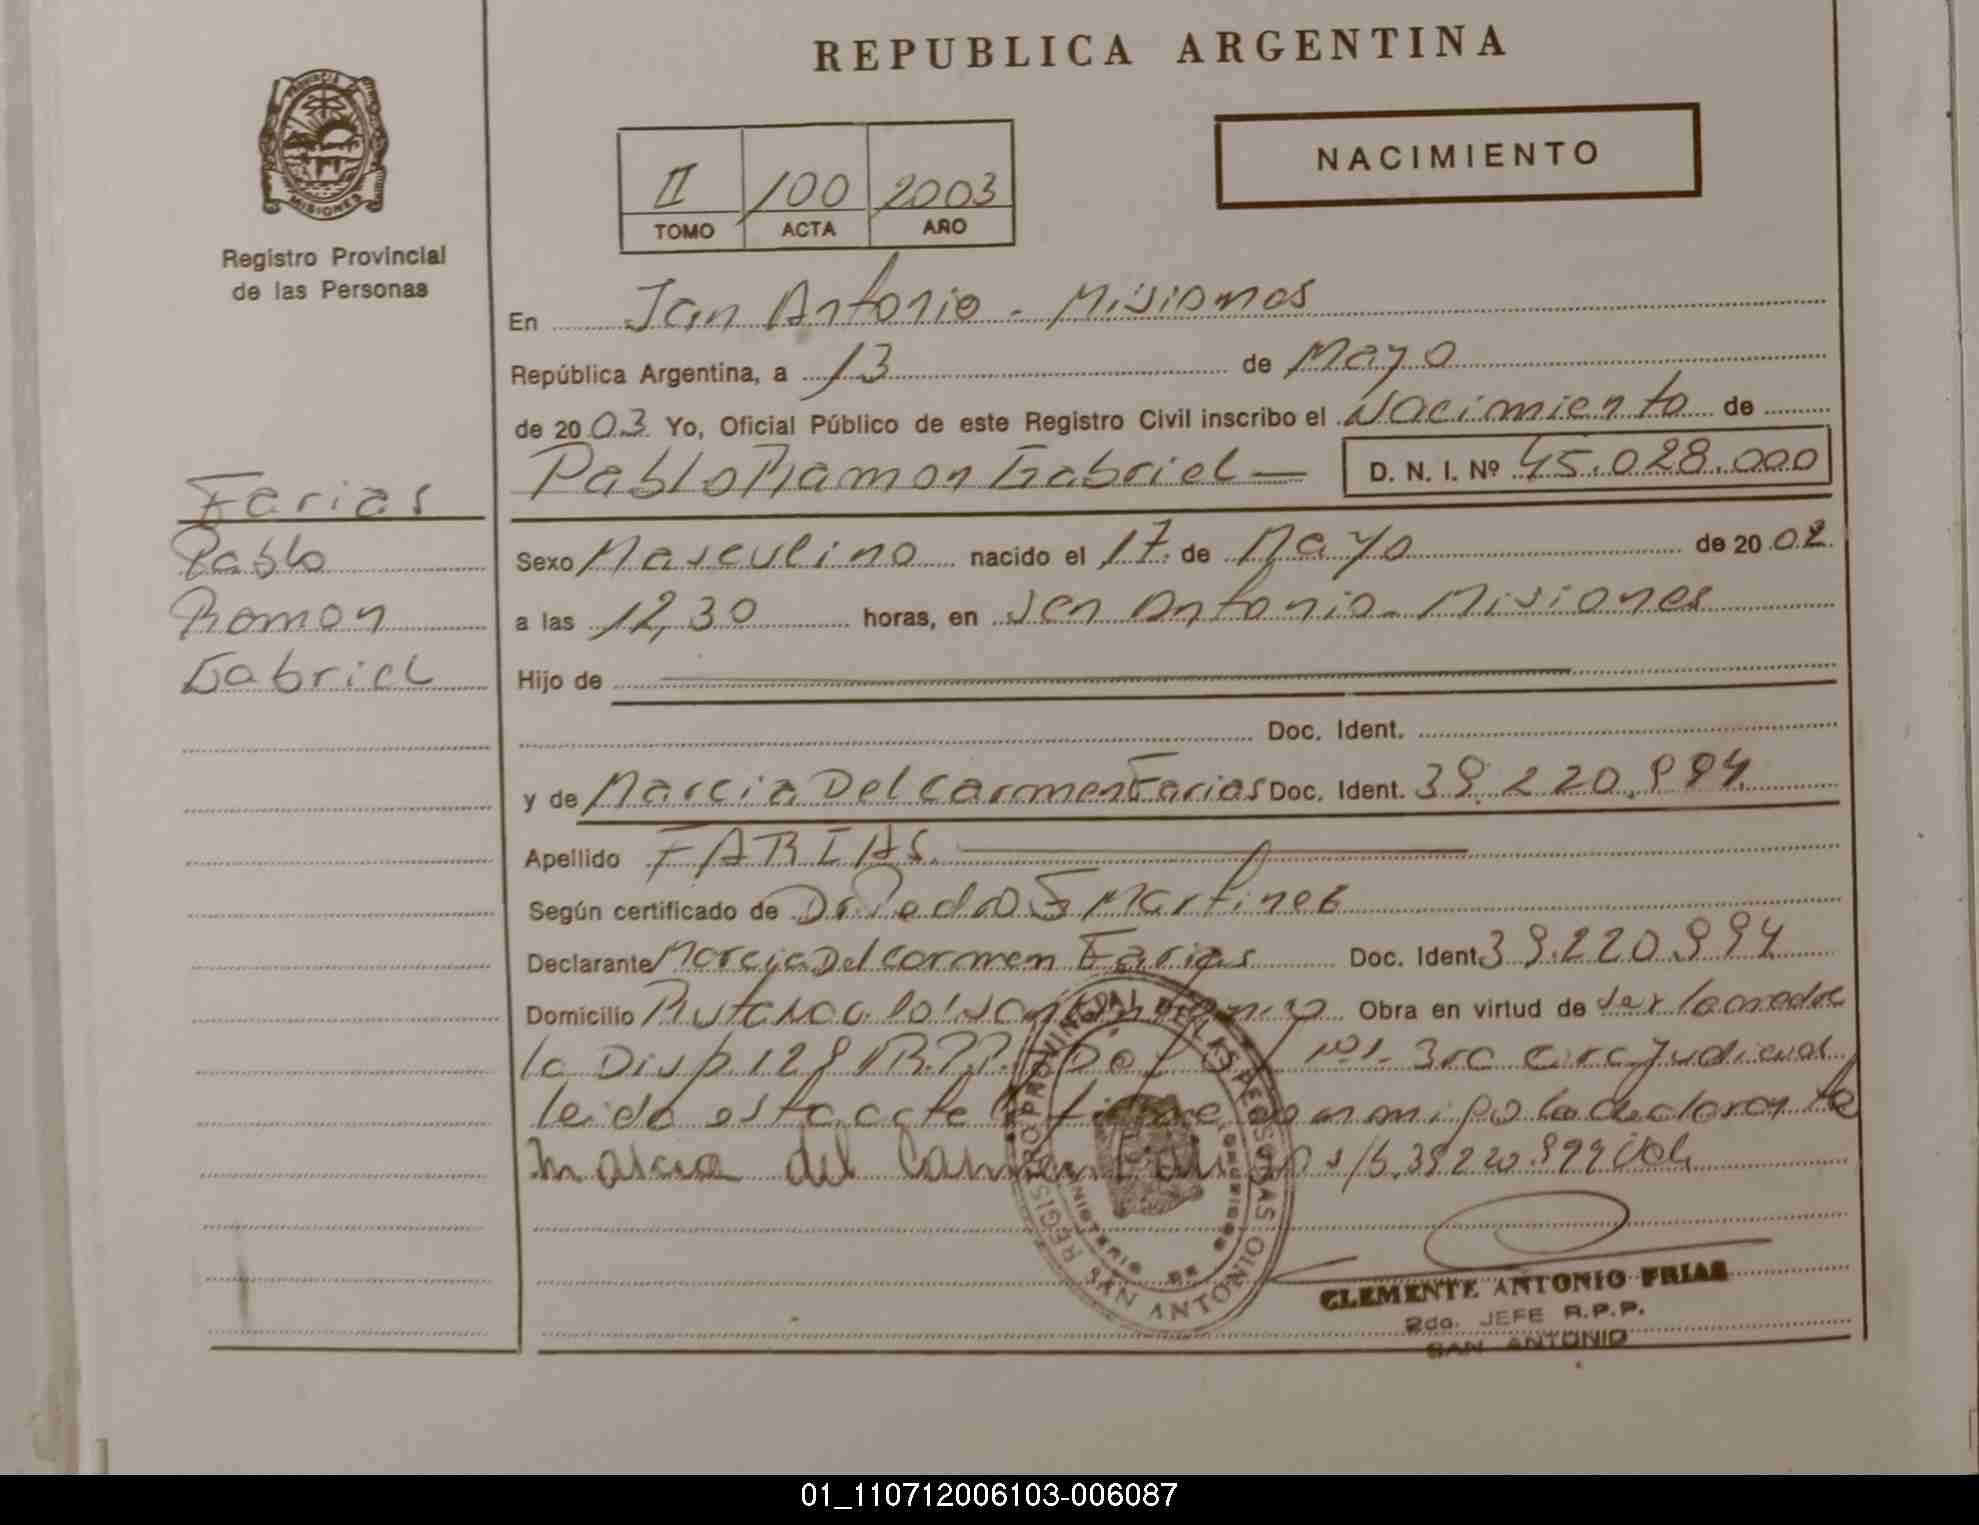 REPUBLICA ARGENTINA
PROVINCIA DE
MISIONES
Registro Provincial
de las Personas
NACIMIENTO
II 100 2003
TOMO ACTA AÑO
En San Antonio - Misiones
República Argentina, a 13 de Mayo
de 2003 Yo, Oficial Público de este Registro Civil inscribo el Nacimiento de
Pablo Ramon Gabriel — D. N. I. Nº 45.028.000
Farias
Pablo
Ramon
Gabriel
Sexo Masculino nacido el 17 de Mayo de 2002
a las 12,30 horas, en San Antonio - Misiones
Hijo de
Doc. Ident.
y de Marcia Del Carmen Farias Doc. Ident. 39.220.994
Apellido FARIAS.
Según certificado de Dr Pedro E Martinez
Declarante Marcia Del Carmen Farias Doc. Ident. 39.220.994
Domicilio Ruta San Antonio Obra en virtud de
la Disp. 128 R.P.P. Nº1- 3ra Circ Judicial
leida esta acta la declarante
Marcia del Carmen Farias
REGISTRO PROVINCIAL DE LAS PERSONAS
SAN ANTONIO
CLEMENTE ANTONIO FRIAS
2do. JEFE R.P.P.
SAN ANTONIO
01_110712006103-006087